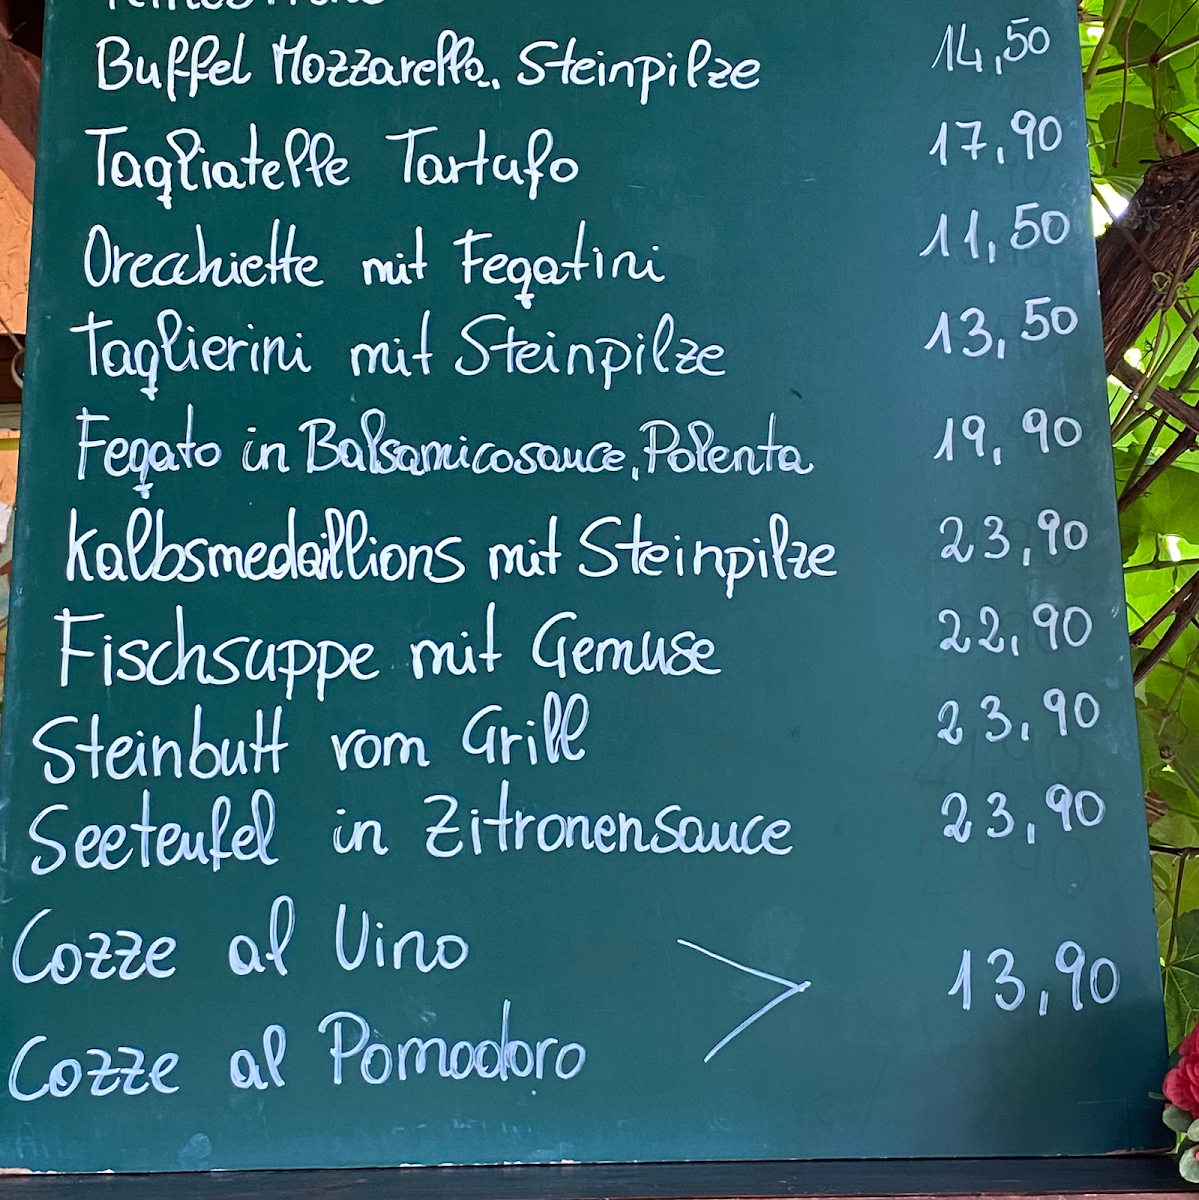 Buffel Mozzarella, Steinpilze 14,50
Tagliatelle Tartufo 17,90
Orecchiette mit Fegatini 11,50
Taglierini mit Steinpilze 13,50
Fegato in Balsamicosauce, Polenta 19,90
Kalbsmedaillions mit Steinpilze 23,90
Fischsuppe mit Gemuse 22,90
Steinbutt vom Grill 23,90
Seeteufel in Zitronensauce 23,90
Cozze al Vino
> 13,90
Cozze al Pomodoro